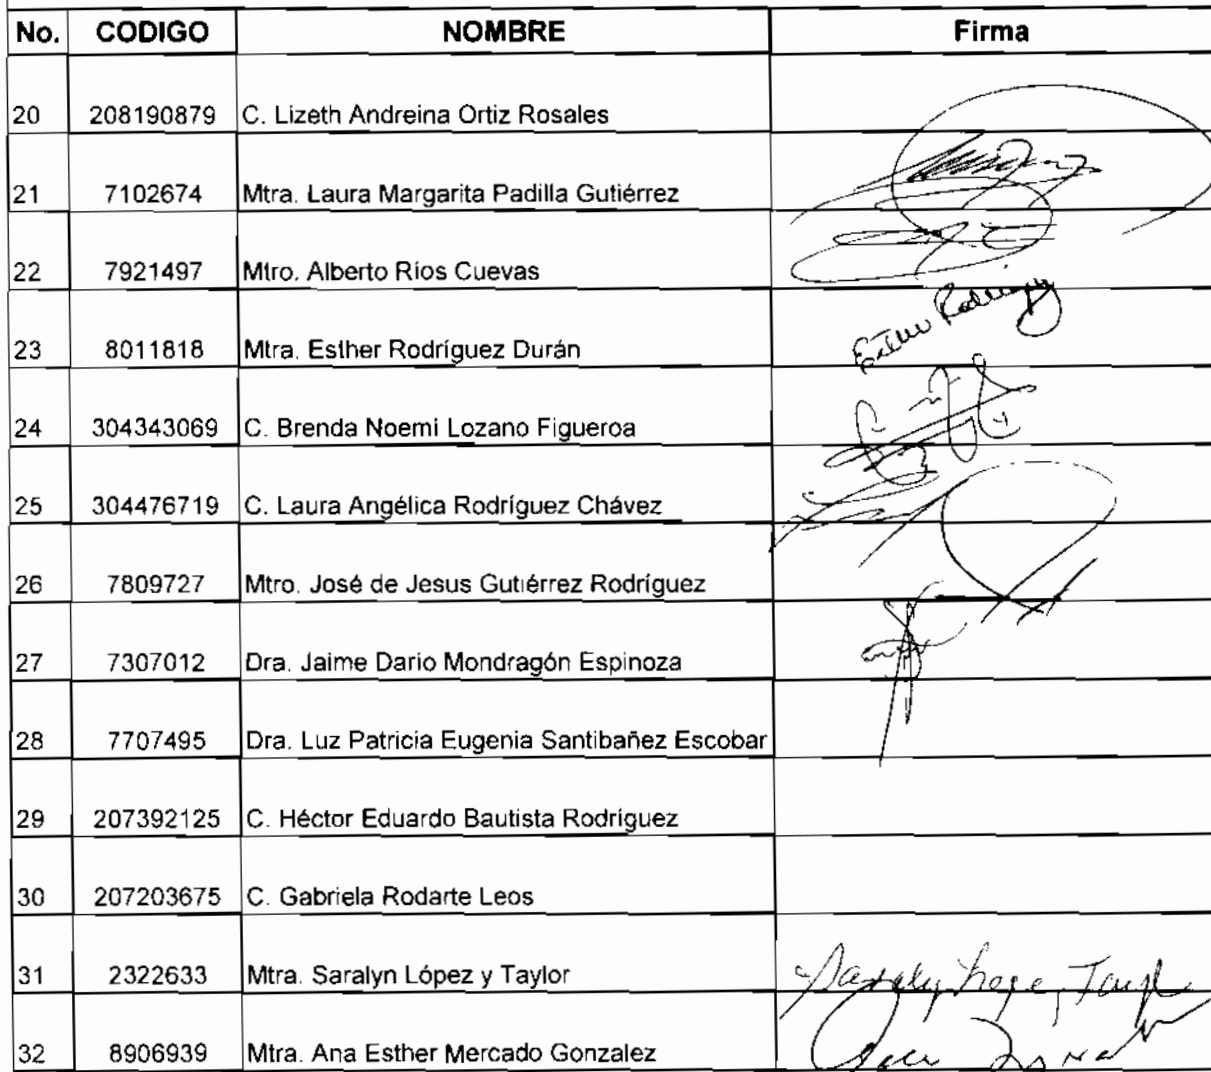 No. CODIGO NOMBRE Firma
20 208190879 C. Lizeth Andreina Ortiz Rosales
21 7102674 Mtra. Laura Margarita Padilla Gutiérrez
22 7921497 Mtro. Alberto Ríos Cuevas
Esther Rodríguez
23 8011818 Mtra. Esther Rodríguez Durán
24 304343069 C. Brenda Noemi Lozano Figueroa
25 304476719 C. Laura Angélica Rodríguez Chávez
26 7809727 Mtro. José de Jesus Gutiérrez Rodríguez
27 7307012 Dra. Jaime Dario Mondragón Espinoza
28 7707495 Dra. Luz Patricia Eugenia Santibañez Escobar
29 207392125 C. Héctor Eduardo Bautista Rodríguez
30 207203675 C. Gabriela Rodarte Leos
31 2322633 Mtra. Saralyn López y Taylor
32 8906939 Mtra. Ana Esther Mercado Gonzalez